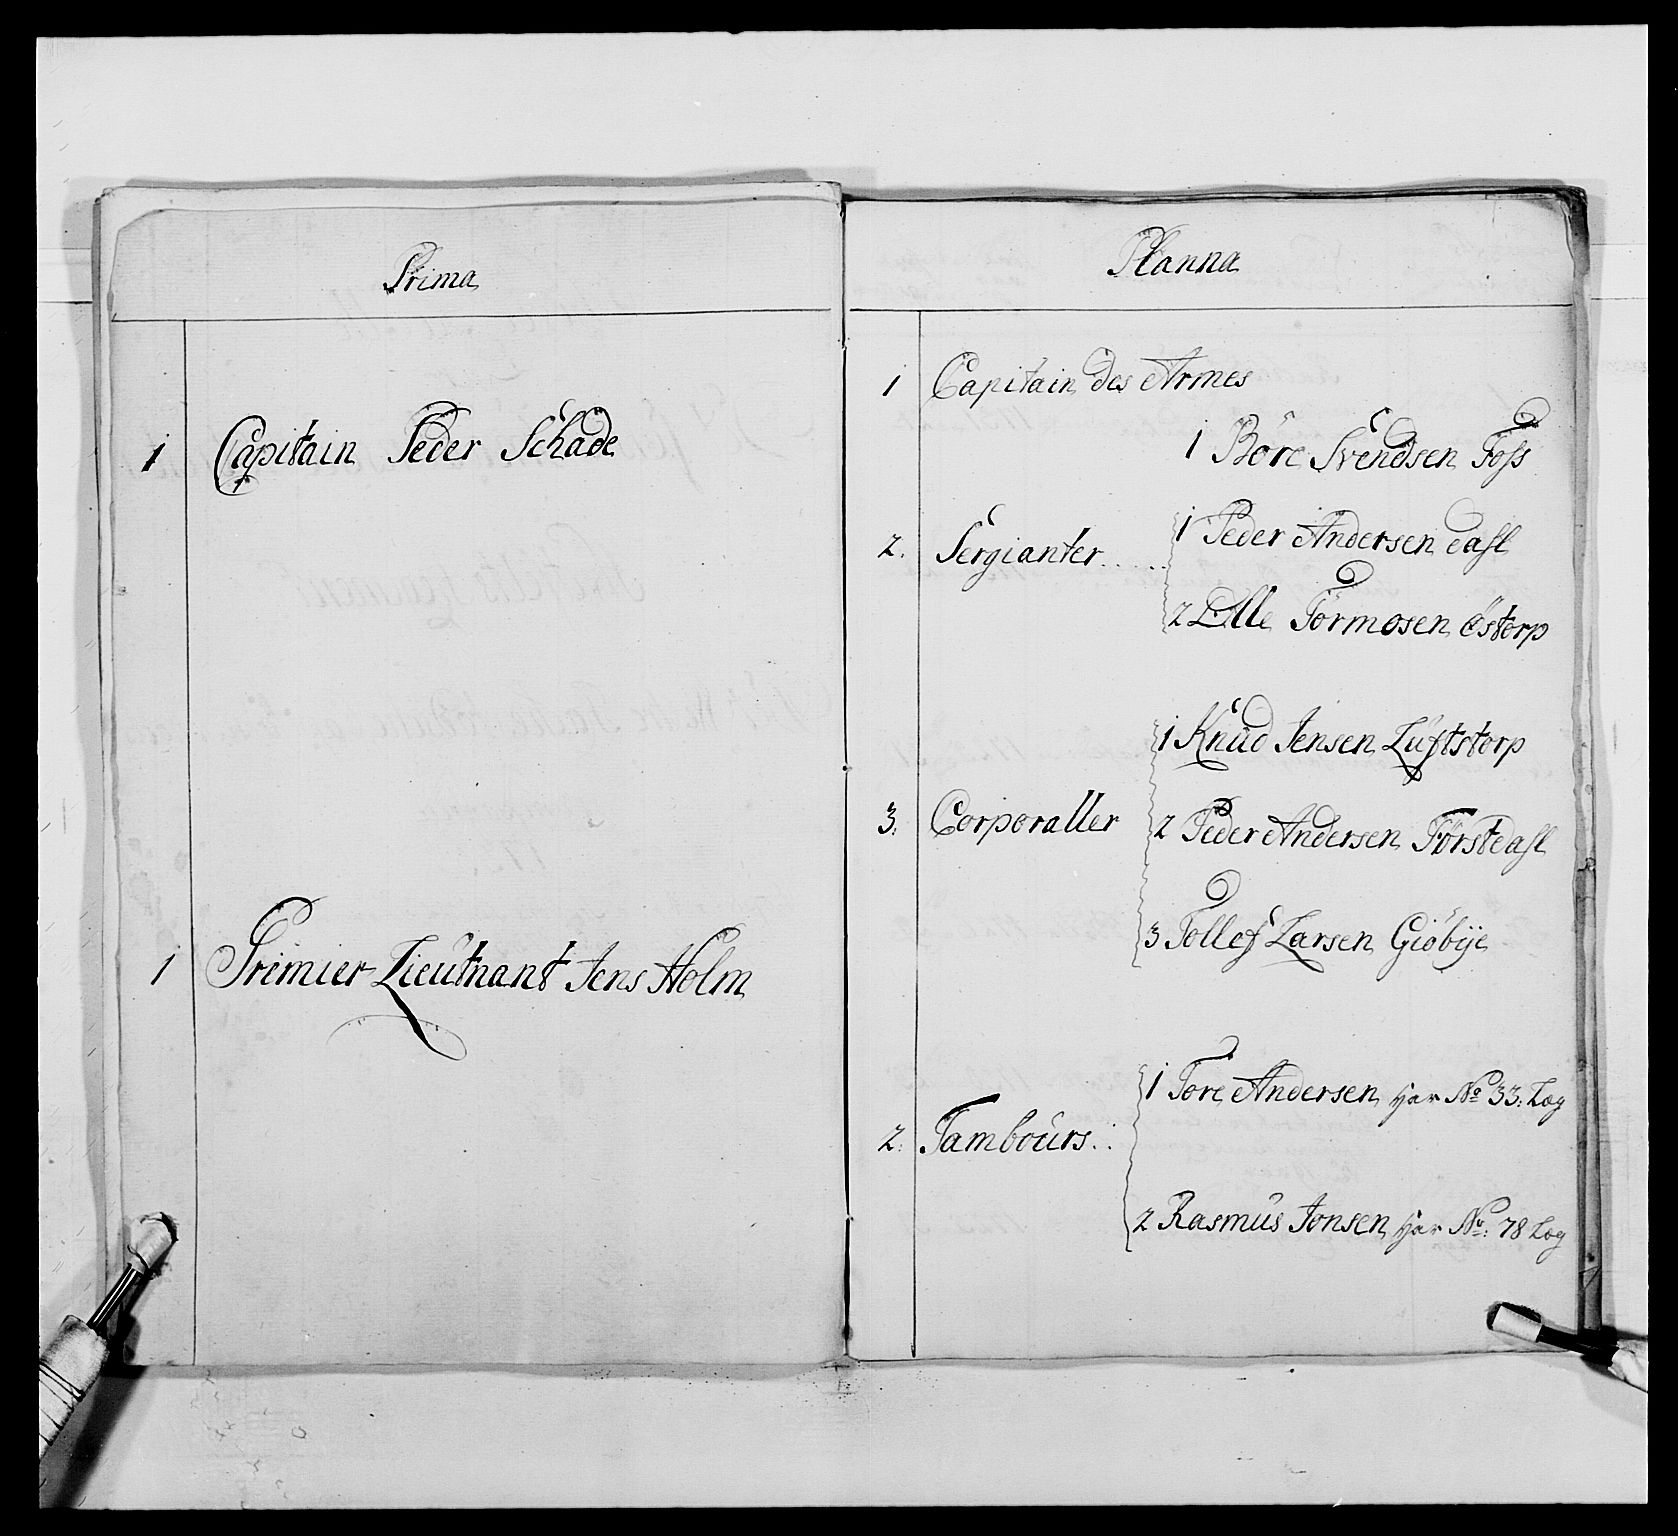 Prima
1 Capitain Peder Schade
1 Premier Lieutnant Jens Holm
Planna
1 Capitain des Armes
1 Böre Svendsen Foss
2. Sergianter.....
1 Peder Andersen dahl
2 Ölle Tormosen Östorp
3. Corporaller
1 Knud Jensen Luftstorp
2 Peder Andersen Förstdahl
3 Tollef Larsen Giöbye
2. Tambours..
1 Tore Andersen har No 33: Læg
2 Rasmus Jonsen har No: 78 Læg